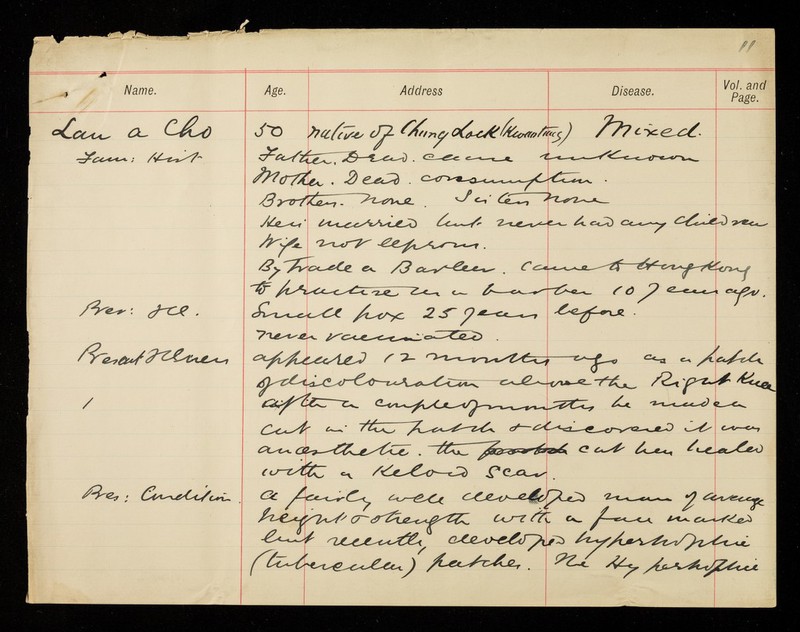 11
Name. Age. Address Disease. Vol. and Page.
Lau a Cho 50 native of Chung Lock (Kwantung) Mixed.
Fam: Hist Father. Dead. cause unknown
Mother. Dead. consumption.
Brothers. None. Sisters None
He is married but never had any children
Wife not leprous.
By trade a Barber. Came to Hong Kong
to practise as a barber 10 years ago.
Prev: Ill. Small pox 25 years before.
never vaccinated.
Present Illness appeared 12 months ago as a patch
of discolouration above the Right Knee
after a couple of months he made a
cut in the patch & discovered it was
anaesthetic. The cut has healed
with a Keloid Scar.
Pres: Condition. A fairly well developed man of average
height & strength with a face marked
but recently, developed hypertrophic
(tubercular) patches. The Hypertrophic